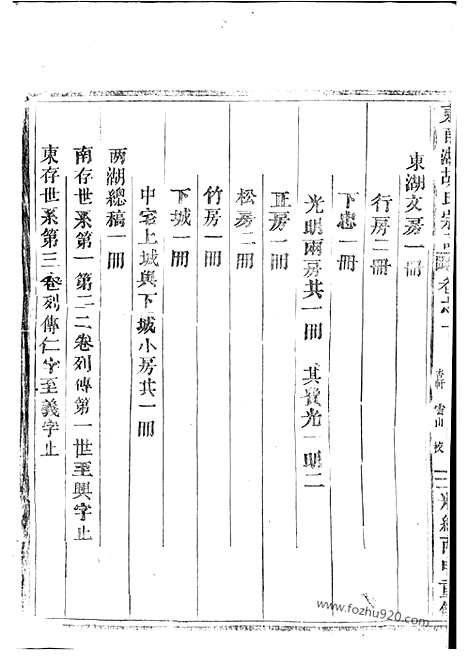 東湖文房一冊
行房二冊
下忠一冊
光明兩房共一冊 其費光一明二
正房一冊
松房二冊
竹房一冊
下城一冊
中宅上城與下城小房共一冊
兩湖總稿一冊
南存世系第一第二二卷列傳第一世至興字止
東存世系第三卷列傳仁字至義字止
www.fozhu920.com